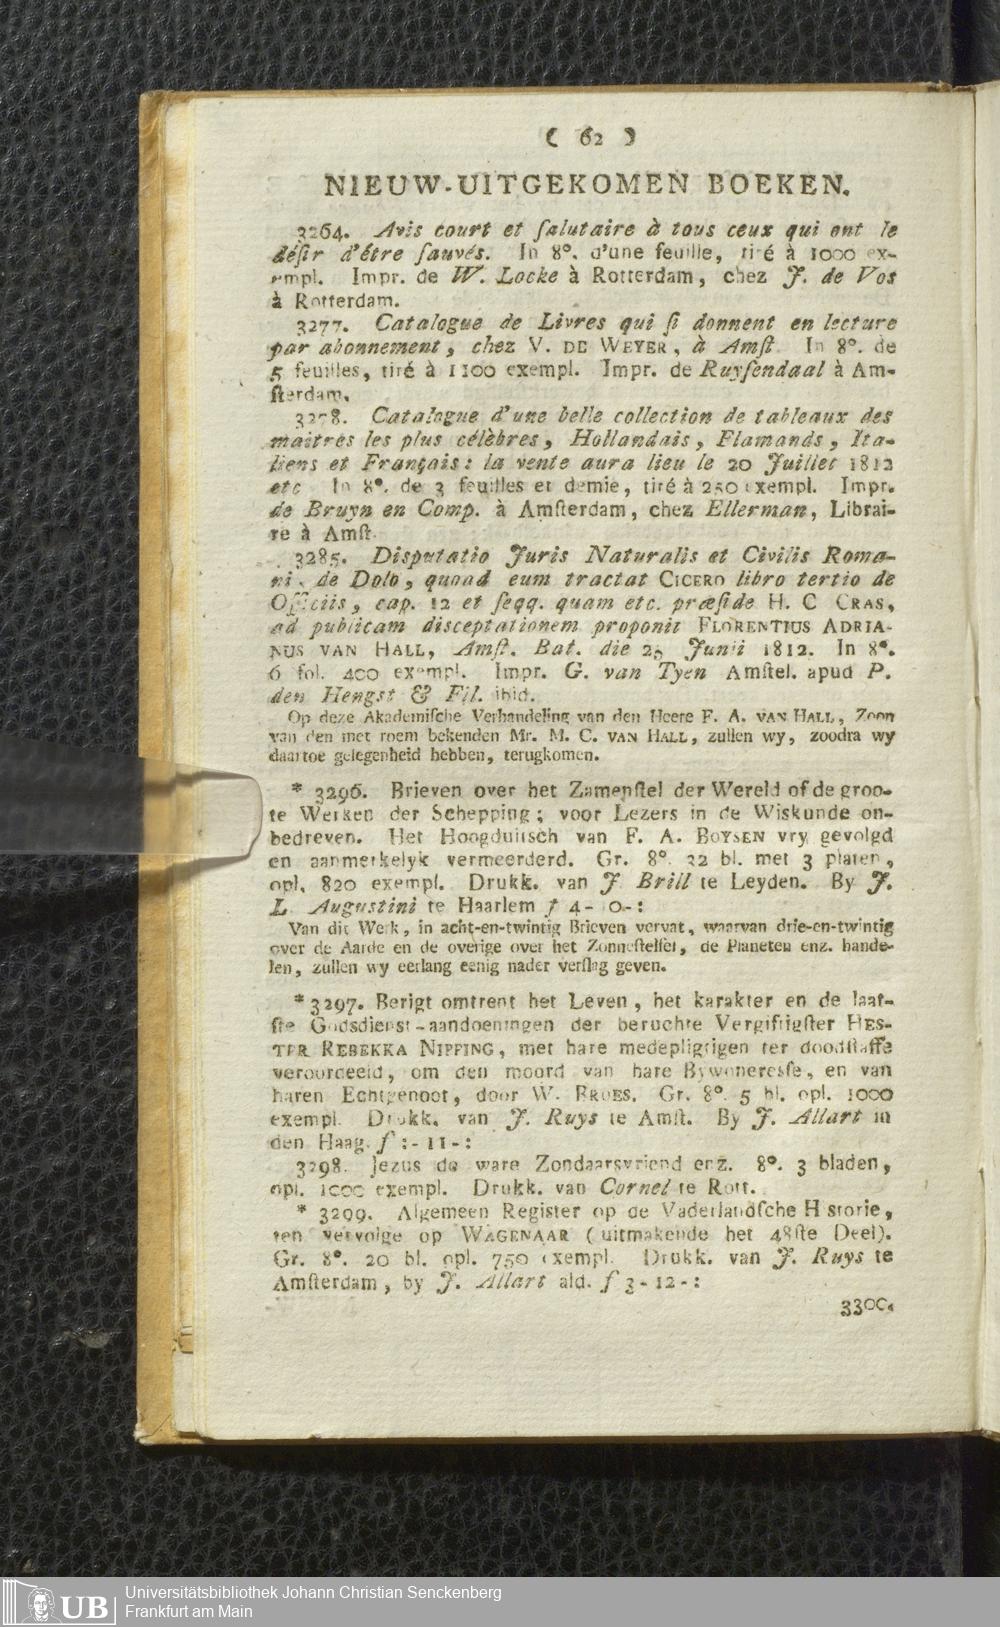 ( 62 )
NIEUW-UITGEKOMEN BOEKEN.
3264. Avis court et ſalutaire à tous ceux qui ont le
déſir d'étre ſauvés. In 8°. d'une feuille, tiré à 1000 ex-
empl. Impr. de W. Locke à Rotterdam, chez J. de Vos
à Rotterdam.
3277. Catalogue de Livres qui ſi donnent en lecture
par abonnement, chez V. DE WEYER, à Amſt. In 8°. de
5 feuilles, tiré à 1100 exempl. Impr. de Ruyſendaal à Am-
ſterdam.
3278. Catalogue d'une belle collection de tableaux des
maitres les plus célèbres, Hollandais, Flamands, Ita-
liens et Français: la vente aura lieu le 20 Juillet 1812
etc In 8°. de 3 feuilles et demie, tiré à 250 exempl. Impr.
de Bruyn en Comp. à Amſterdam, chez Ellerman, Librai-
re à Amſt.
3285. Disputatio Juris Naturalis et Civilis Roma-
ni, de Dolo, quoad eum tractat CICERO libro tertio de
Officiis, cap. 12 et ſeqq. quam etc. præſide H. C CRAS,
ad publicam disceptationem proponit FLORENTIUS ADRIA-
NUS VAN HALL, Amſt. Bat. die 25 Junii 1812. In 8°.
6 fol. 400 exempl. Impr. G. van Tyen Amſtel. apud P.
den Hengst & Fil. ibid.
Op deze Akademiſche Verhandeling van den Heere F. A. VAN HALL, Zoon
van den met roem bekenden Mr. M. C. VAN HALL, zullen wy, zoodra wy
daartoe gelegenheid hebben, terugkomen.
* 3296. Brieven over het Zamenſtel der Wereld of de groo-
te Werken der Schepping; voor Lezers in de Wiskunde on-
bedreven. Het Hoogduitsch van F. A. BOYSEN vry gevolgd
en aanmerkelyk vermeerderd. Gr. 8°. 32 bl. met 3 platen,
opl. 820 exempl. Drukk. van J Brill te Leyden. By J.
L Augustini te Haarlem f 4- 0-:
Van dit Werk, in acht-en-twintig Brieven vervat, waarvan drie-en-twintig
over de Aarde en de overige over het Zonneſtelſel, de Planeten enz. hande-
len, zullen wy eerlang eenig nader verſlag geven.
* 3297. Berigt omtrent het Leven, het karakter en de laat-
ſte Godsdienst-aandoeningen der beruchte Vergiftigſter HES-
TER REBEKKA NIPPING, met hare medepligtigen ter doodſtraffe
veroordeeld, om den moord van hare Bywoneresſe, en van
haren Echtgenoot, door W. BROES. Gr. 8°. 5 bl. opl. 1000
exempl. Drukk. van J. Ruys te Amſt. By J. Allart in
den Haag. f :- 11-:
3298. Jezus de ware Zondaarsvriend enz. 8°. 3 bladen,
opl. 1000 exempl. Drukk. van Cornel te Rott.
* 3299. Algemeen Register op de Vaderlandſche Historie,
ten vervolge op WAGENAAR (uitmakende het 48ſte Deel).
Gr. 8°. 20 bl. opl. 750 exempl. Drukk. van J. Ruys te
Amſterdam, by J. Allart ald. f 3- 12-:
3300.
UB
Universitätsbibliothek Johann Christian Senckenberg
Frankfurt am Main